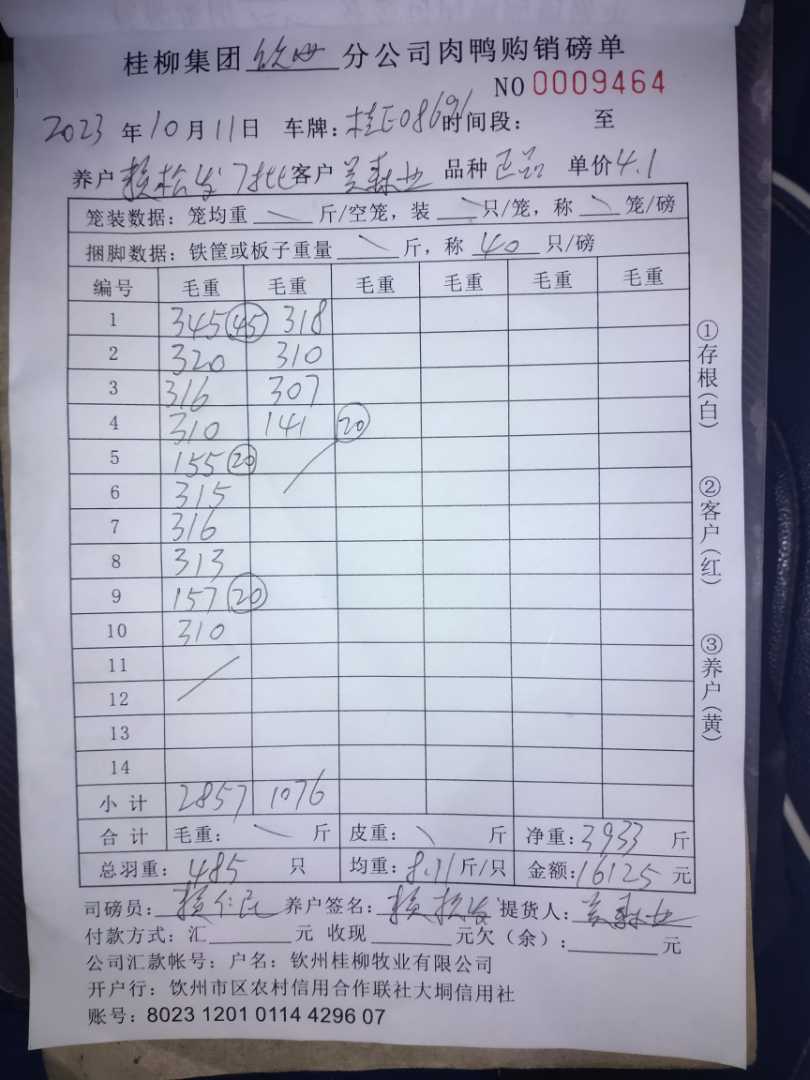 桂柳集团 钦州 分公司肉鸭购销磅单
NO 0009464
2023 年 10 月 11 日 车牌: 桂E08696 时间段: 至
养户 赖松发 7批 客户 吴森业 品种 正品 单价 4.1
笼装数据: 笼均重 \ 斤/空笼, 装 \ 只/笼, 称 \ 笼/磅
捆脚数据: 铁筐或板子重量 \ 斤, 称 40 只/磅
编号 毛重 毛重 毛重 毛重 毛重 毛重
1 345 (45) 318
2 320 310
3 316 307
4 310 141 (20)
5 155 (20)
6 315
7 316
8 313
9 157 (20)
10 310
11
12
13
14
小计 2857 1076
合计 毛重: \ 斤 皮重: \ 斤 净重: 3933 斤
总羽重: 485 只 均重: 8.11 斤/只 金额: 16125 元
司磅员: 赖仁民 养户签名: 赖松发 提货人: 吴森业
付款方式: 汇 元 收现 元欠(余): 元
公司汇款帐号: 户名: 钦州桂柳牧业有限公司
开户行: 钦州市区农村信用合作联社大垌信用社
账号: 8023 1201 0114 4296 07
①存根(白)
②客户(红)
③养户(黄)